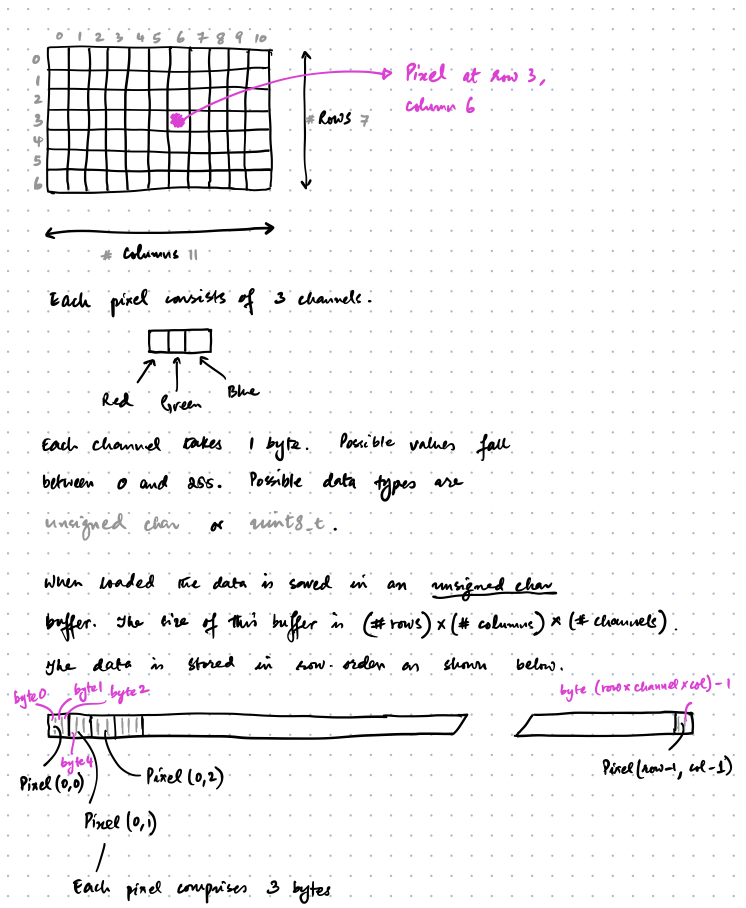 0 1 2 3 4 5 6 7 8 9 10
0
1
2
3
4
5
6
Pixel at row 3,
column 6
# Rows 7
# Columns 11
Each pixel consists of 3 channels.
Red Green Blue
Each channel takes 1 byte. Possible values fall
between 0 and 255. Possible data types are
unsigned char or uint8_t.
When loaded the data is saved in an unsigned char
buffer. The size of this buffer is (# rows) × (# columns) × (# channels).
The data is stored in row-order as shown below.
byte0 byte1 byte2
byte (row×channel×col)-1
byte4
Pixel (0,0)
Pixel (0,2)
Pixel (row-1, col-1)
Pixel (0,1)
Each pixel comprises 3 bytes